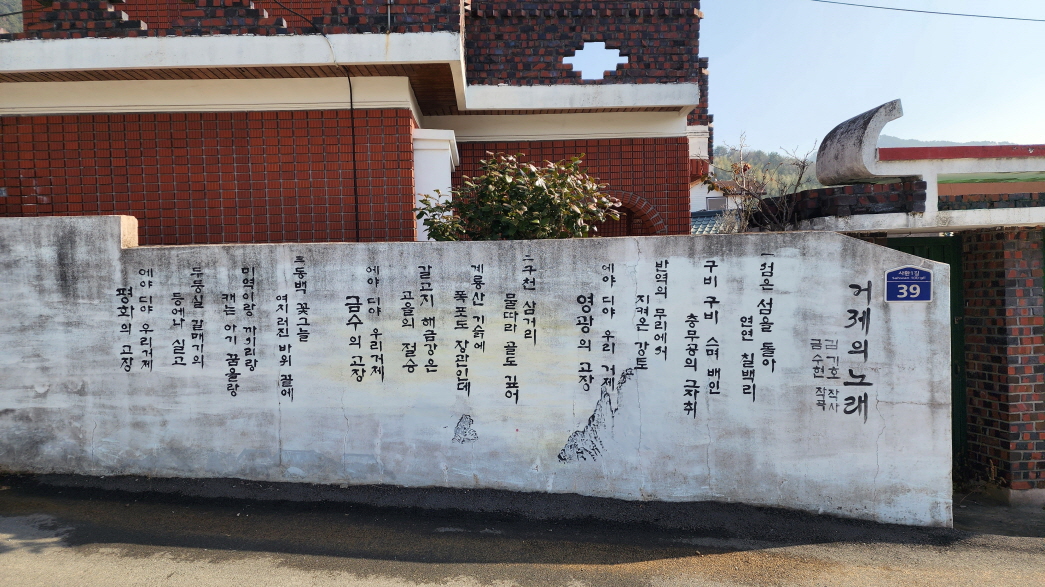 거제의 노래
김기호 작사
금수현 작곡
一섬은 섬을 돌아
연연 칠백리
구비 구비 스며 배인
충무공의 그자취
반역의 무리에서
지켜온 강토
에야 디야 우리 거제
영광의 고장
二구천 삼거리
물따라 골도 깊어
계룡산 기슭에
폭포도 장관인데
갈고지 해금강은
고을의 절승
에야 디야 우리거제
금수의 고장
三동백 꽃그늘
여지러진 바위 끝에
미역이랑 까시리랑
캐는 아기 꿈을랑
두둥실 갈매기의
등에나 싣고
에야 디야 우리거제
평화의 고장
사환1길
39